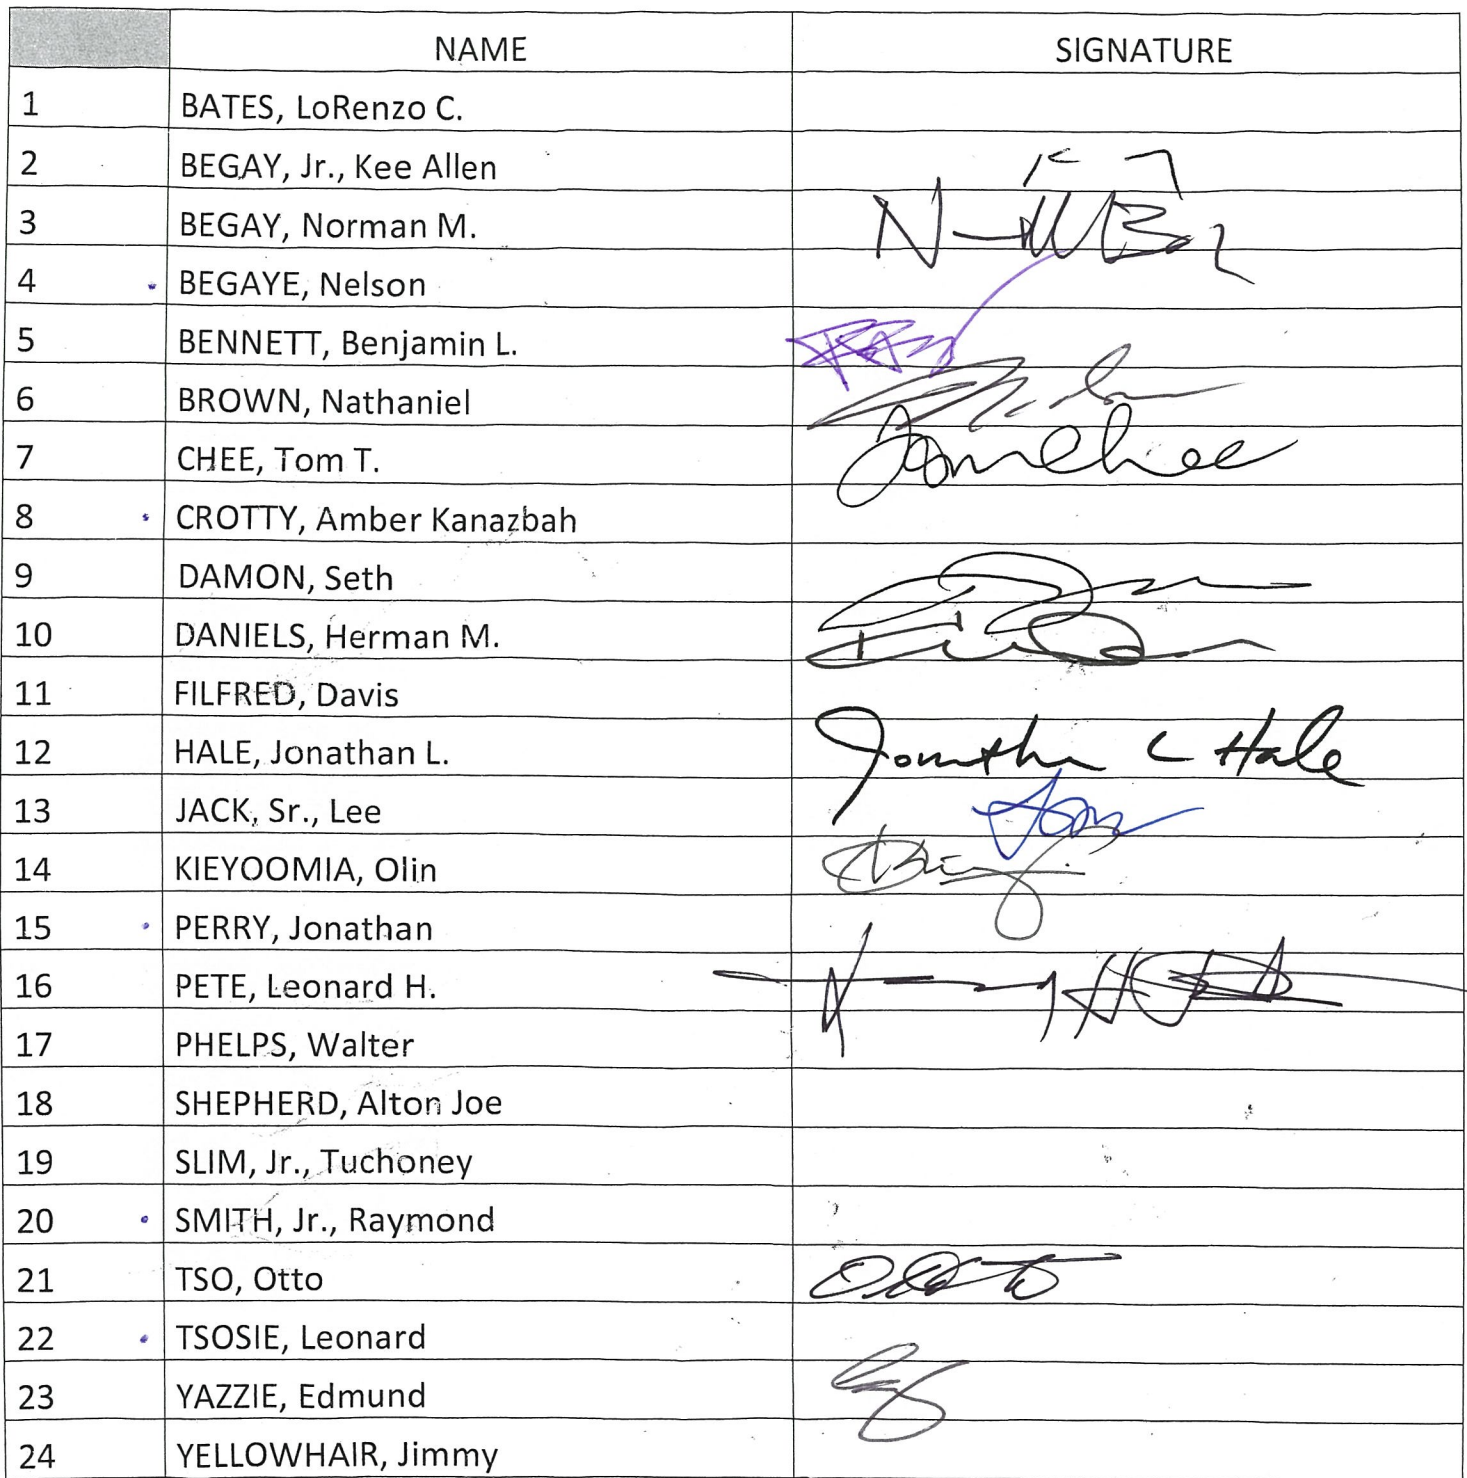 NAME SIGNATURE
1 BATES, LoRenzo C.
2 BEGAY, Jr., Kee Allen
3 BEGAY, Norman M.
4 BEGAYE, Nelson
5 BENNETT, Benjamin L.
6 BROWN, Nathaniel
7 CHEE, Tom T. Tom Chee
8 CROTTY, Amber Kanazbah
9 DAMON, Seth
10 DANIELS, Herman M.
11 FILFRED, Davis
12 HALE, Jonathan L. Jonathan L Hale
13 JACK, Sr., Lee
14 KIEYOOMIA, Olin
15 PERRY, Jonathan
16 PETE, Leonard H.
17 PHELPS, Walter
18 SHEPHERD, Alton Joe
19 SLIM, Jr., Tuchoney
20 SMITH, Jr., Raymond
21 TSO, Otto
22 TSOSIE, Leonard
23 YAZZIE, Edmund
24 YELLOWHAIR, Jimmy